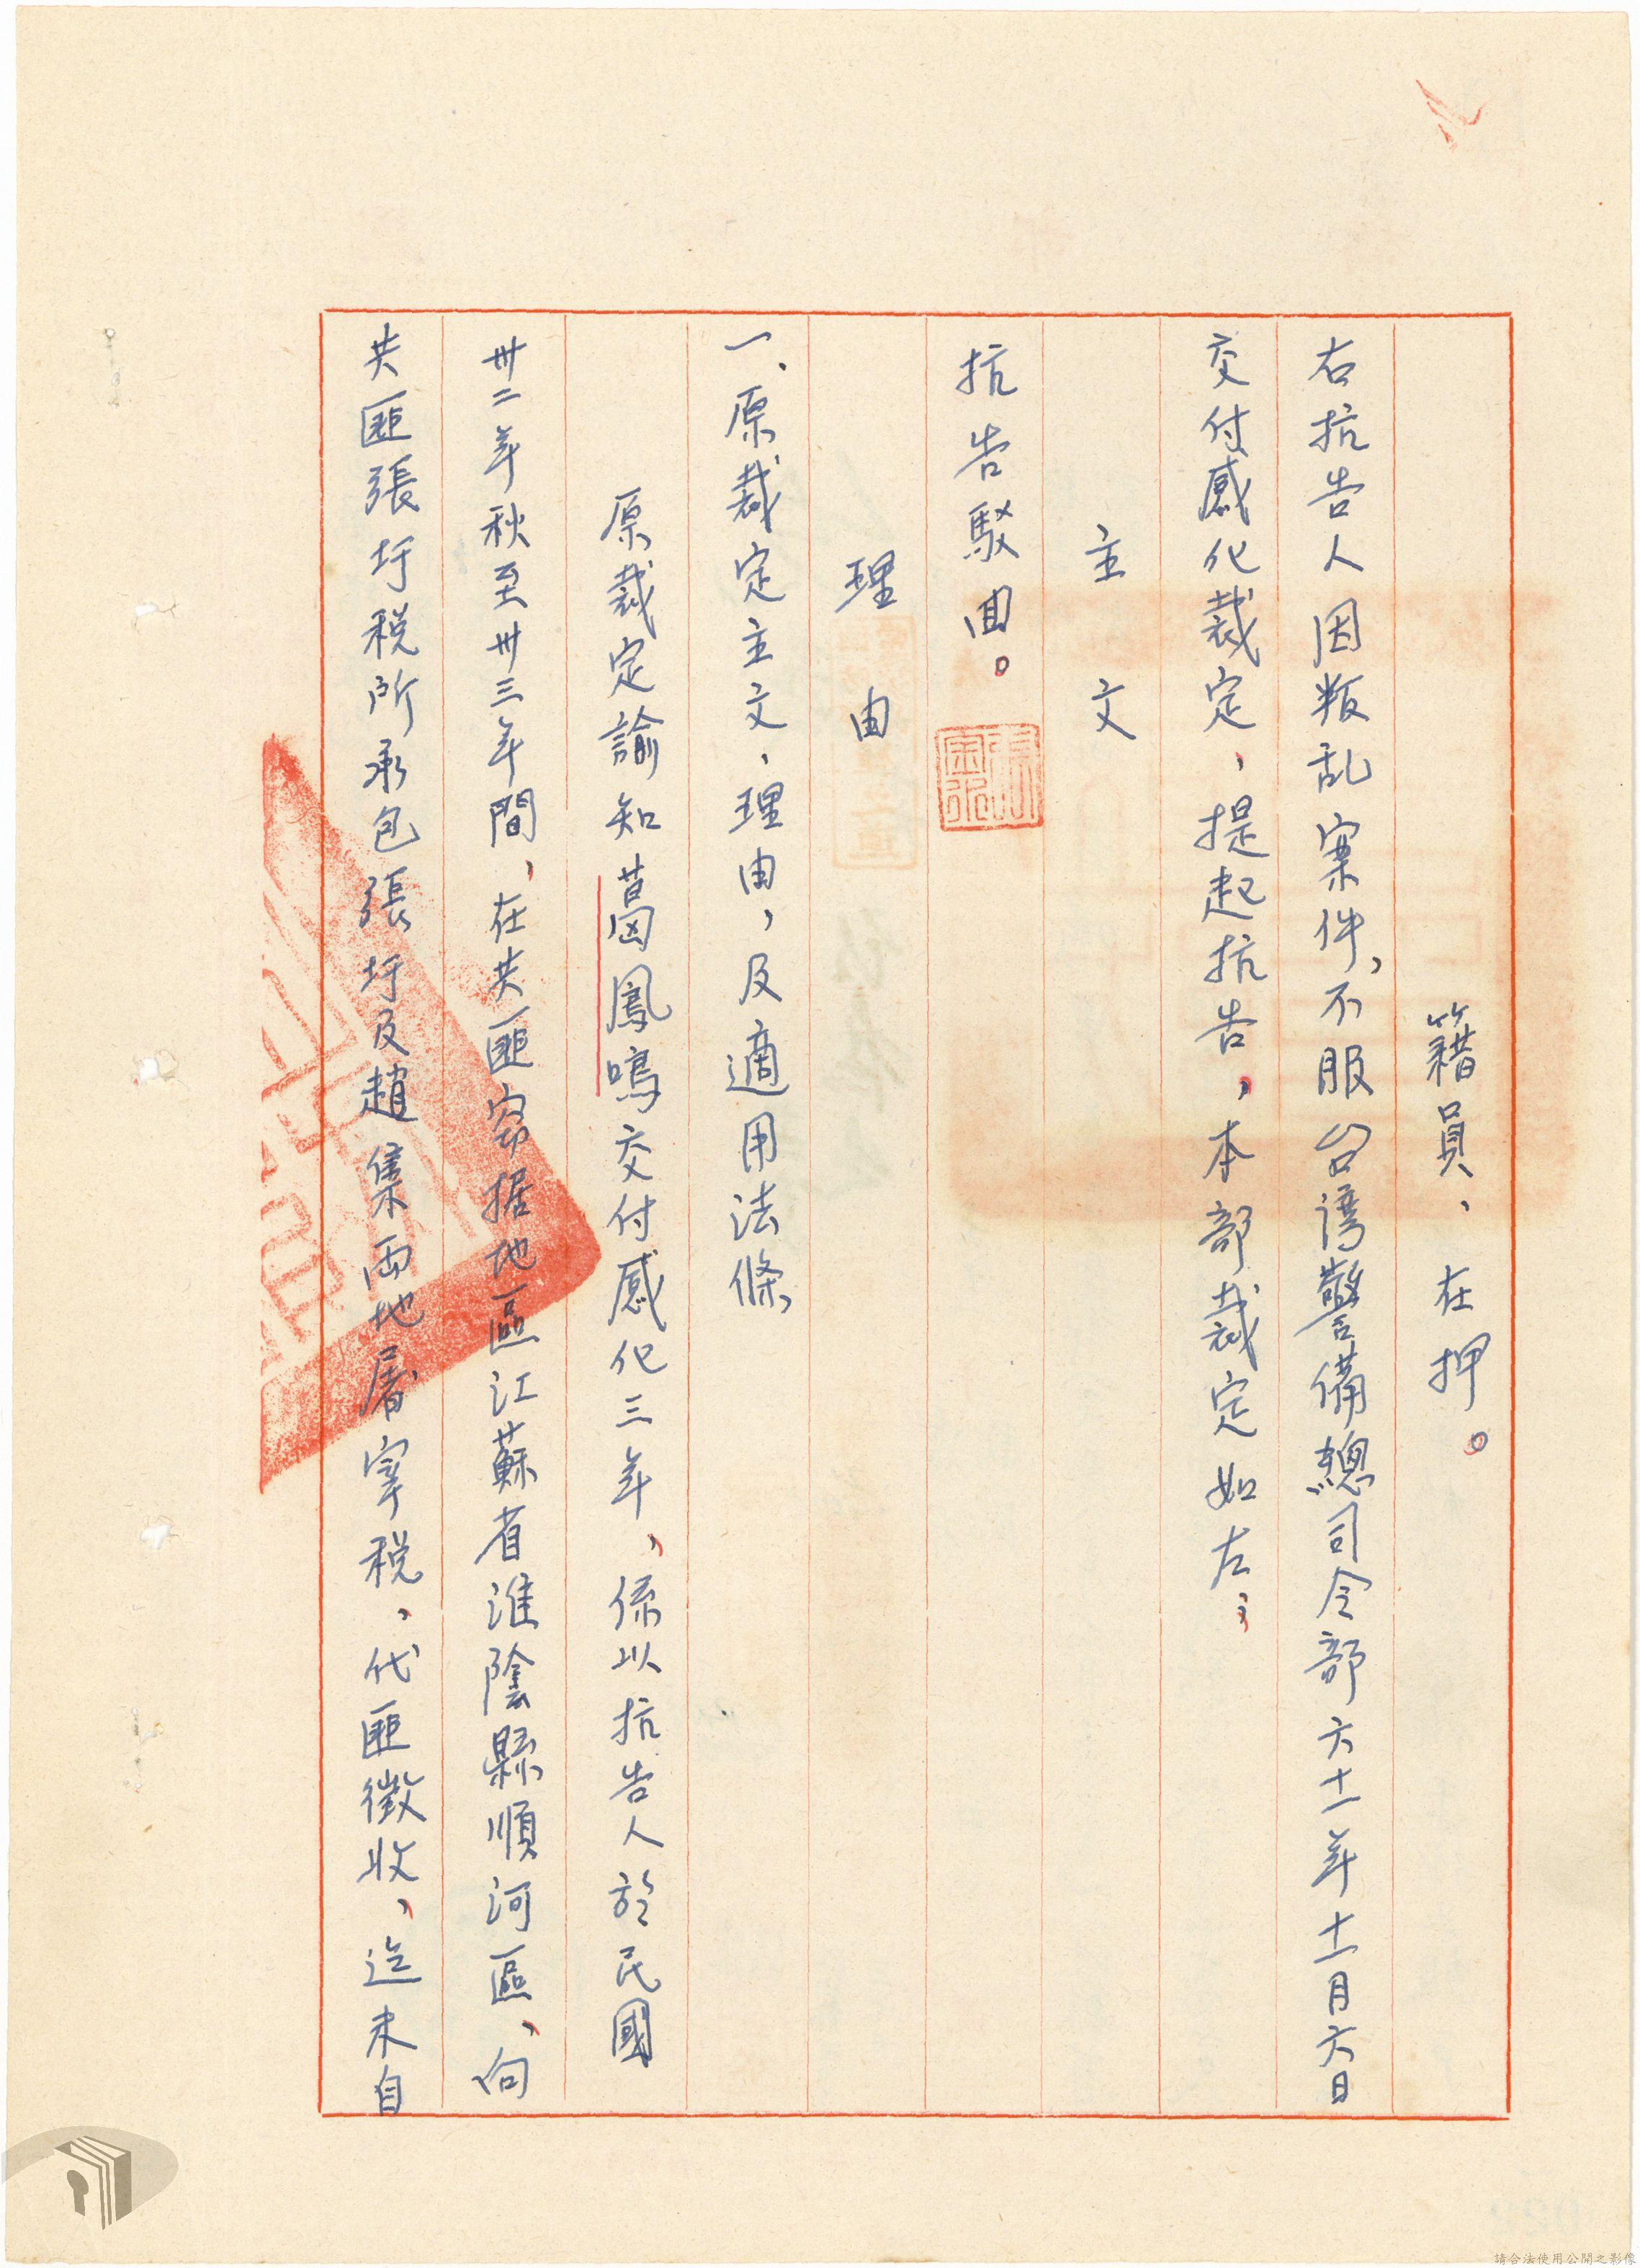 籍員、在押。
右抗告人因叛乱案件,不服台湾警備總司令部六十一年十一月六日
交付感化裁定,提起抗告,本部裁定如左;
主文
抗告駁回。
理由
一、原裁定主文、理由,及適用法條
原裁定諭知葛鳳鳴交付感化三年,係以抗告人於民國
卅二年秋至卅三年間,在共匪窃据地區江蘇省淮陰縣順河區,向
共匪張圩税所承包張圩及趙集両地屠宰税,代匪徵收,迄未自
請合法使用公開之影像